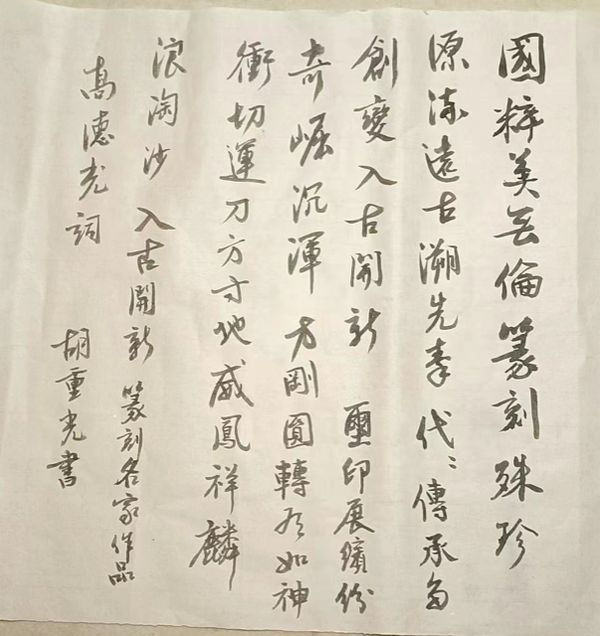 國粹美無倫篆刻殊珍
源流遠古溯先秦代々傳承多
創變入古開新 璽印展繽份
奇崛沉渾 方剛圓轉有如神
衝切運刀方寸地威鳳祥麟
浪淘沙 入古開新 篆刻名家作品
高德光詞
胡重光書